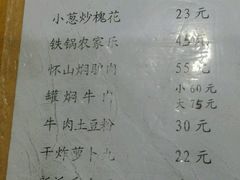 小葱炒槐花 23元
铁锅农家 45元
怀山焖驴肉 55元
小60元
罐焖牛肉 大75元
牛肉土豆粉 30元
干炸萝卜丸 22元